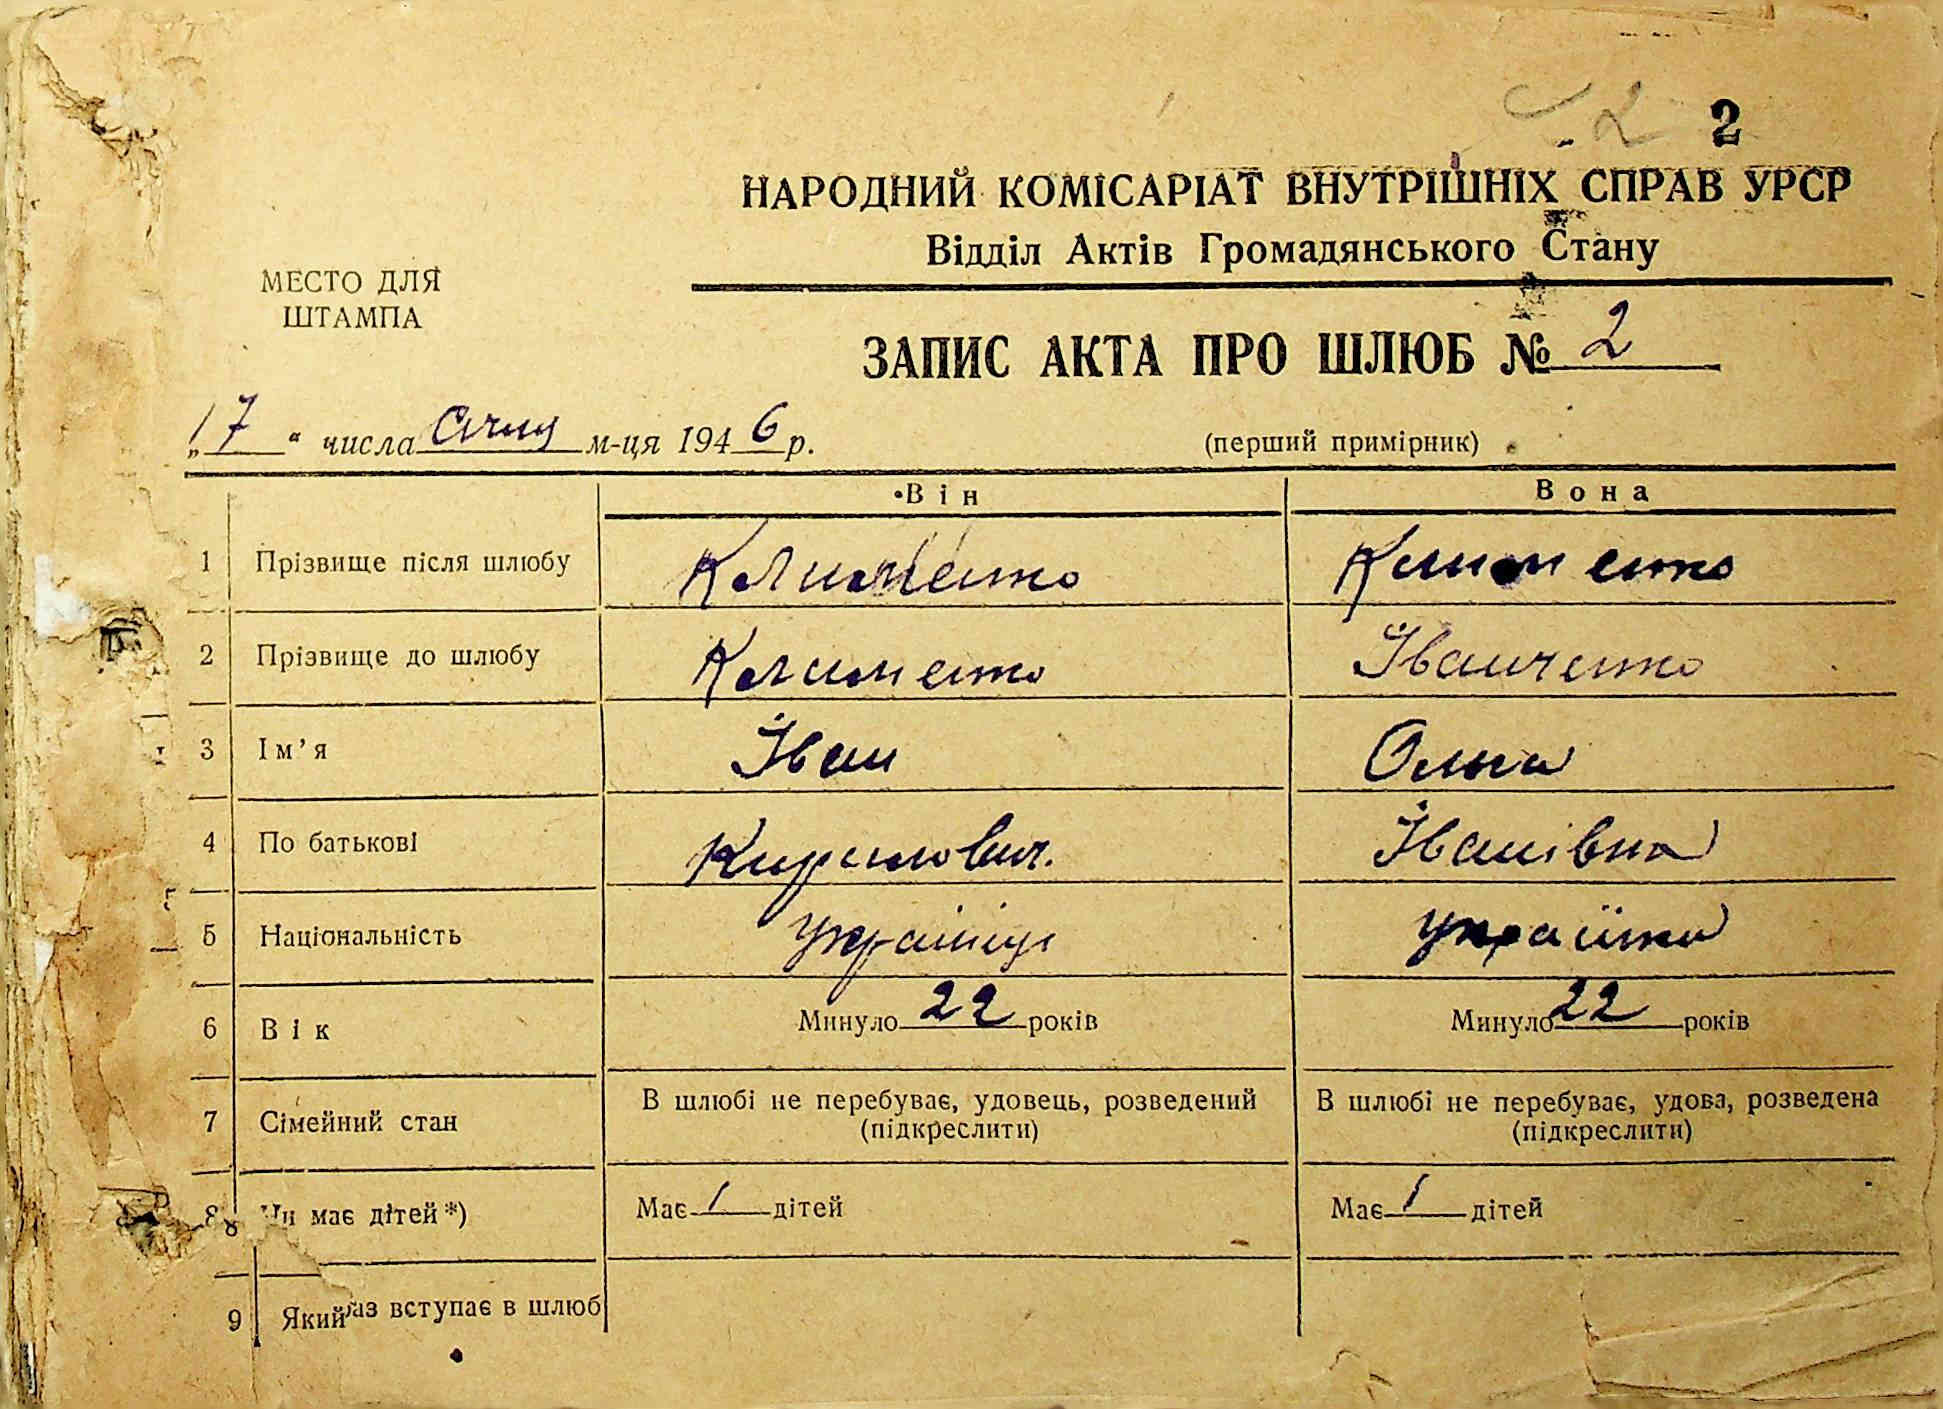 2
2
НАРОДНИЙ КОМІСАРІАТ ВНУТРІШНІХ СПРАВ УРСР
Відділ Актів Громадянського Стану
МЕСТО ДЛЯ
ШТАМПА
ЗАПИС АКТА ПРО ШЛЮБ № 2
„17“ числа Січня м-ця 1946 р.
(перший примірник)
Він
Вона
1 Прізвище після шлюбу Клименко Клименко
2 Прізвище до шлюбу Клименко Іванченко
3 Ім'я Іван Ольга
4 По батькові Кирилович. Іванівна
5 Національність українець українка
6 Вік Минуло 22 років Минуло 22 років
7 Сімейний стан В шлюбі не перебуває, удовець, розведений (підкреслити) В шлюбі не перебуває, удова, розведена (підкреслити)
8 Чи має дітей*) Має 1 дітей Має 1 дітей
9 Який раз вступає в шлюб